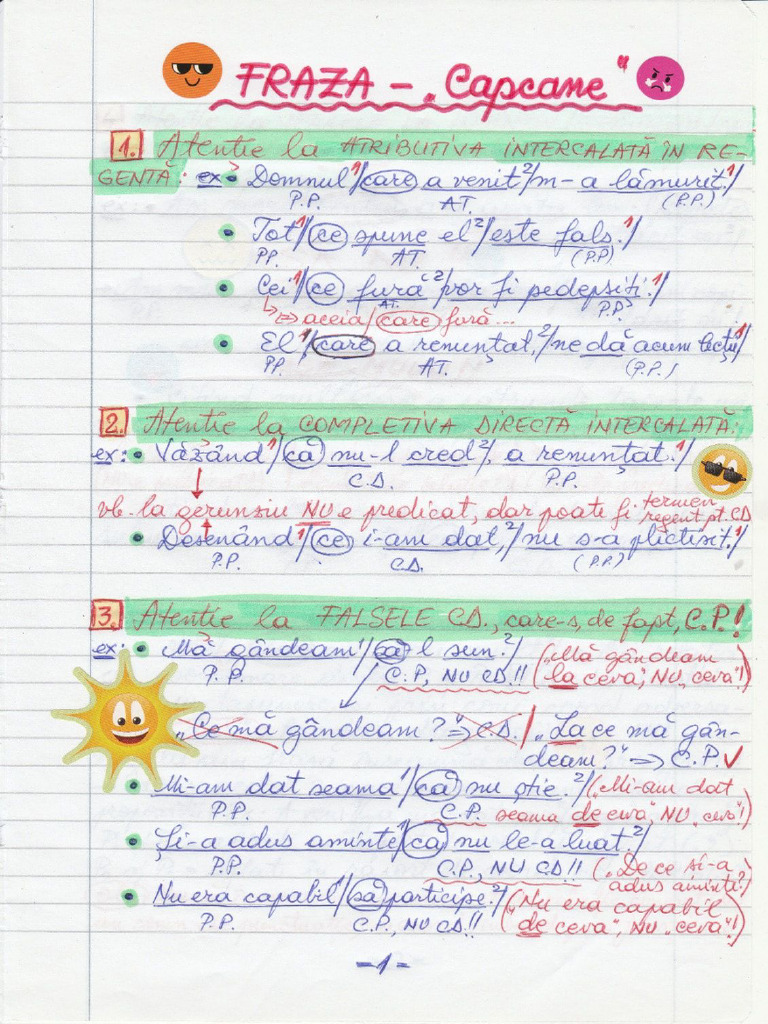 FRAZA - „Capcane"
1. Atenție la ATRIBUTIVA INTERCALATĂ ÎN RE-
GENTĂ: ex: • Domnul¹/care a venit²/m-a lămurit.¹/
P.P. AT. (P.P.)
• Tot¹/ce spune el²/este fals.¹/
PP. AT. (P.P)
• Cei¹/ce fură²/vor fi pedepsiți.¹/
AT. P.P.
↳ ⇔ aceia/care fură...
• El¹/care a renunțat,²/ne dă acum lecții¹/
PP. AT. (P.P.)
2. Atenție la COMPLETIVA DIRECTĂ INTERCALATĂ:
ex: • Văzând¹/că nu-l cred²/, a renunțat.¹/
C.D. P.P.
vb. la gerunziu NU e predicat, dar poate fi termen
regent pt. CD
• Desenând¹/ce i-am dat,²/nu s-a plictisit.¹/
P.P. C.D. (P.P.)
3. Atenție la FALSELE C.D., care-s, de fapt, C.P.!
ex: • Mă gândeam¹/să-l sun.²/ („Mă gândeam
P.P. C.P., NU CD.!! la ceva", NU „ceva"!)
„Ce mă gândeam?" ⇒ C.D. / „La ce mă gân-
deam?" ⇒ C.P. ✓
• Mi-am dat seama¹/că nu știe.²/ („Mi-am dat
P.P. C.P. seama de ceva", NU „ceva"!)
• Și-a adus aminte¹/că nu le-a luat.²/
P.P. C.P., NU CD!! („De ce și-a
adus aminte?)
• Nu era capabil¹/să participe.²/ („Nu era capabil
P.P. C.P., NU CD.!! de ceva", NU „ceva"!)
-1-